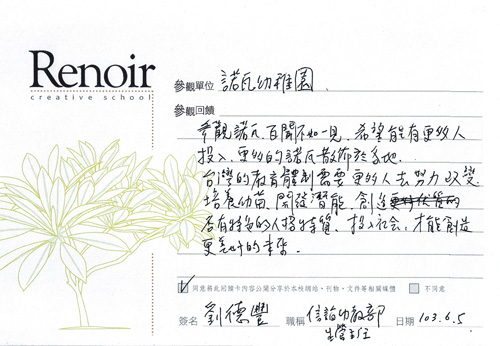 Renoir
creative school
參觀單位 諾瓦幼稚園
參觀回饋
參觀諾瓦,百聞不如一見,希望能有更多人
投入,更多的諾瓦散佈於各地.
台灣的教育體制需要更多人去努力改變
培養幼苗,開發潛能,創造
各有特色的人格特質,投入社會,才能創造
更美好的未來
同意將此回饋卡內容公開分享於本校網站、刊物、文件等相關媒體 不同意
簽名 劉德豐 職稱 信誼幼教部 日期 103.6.5